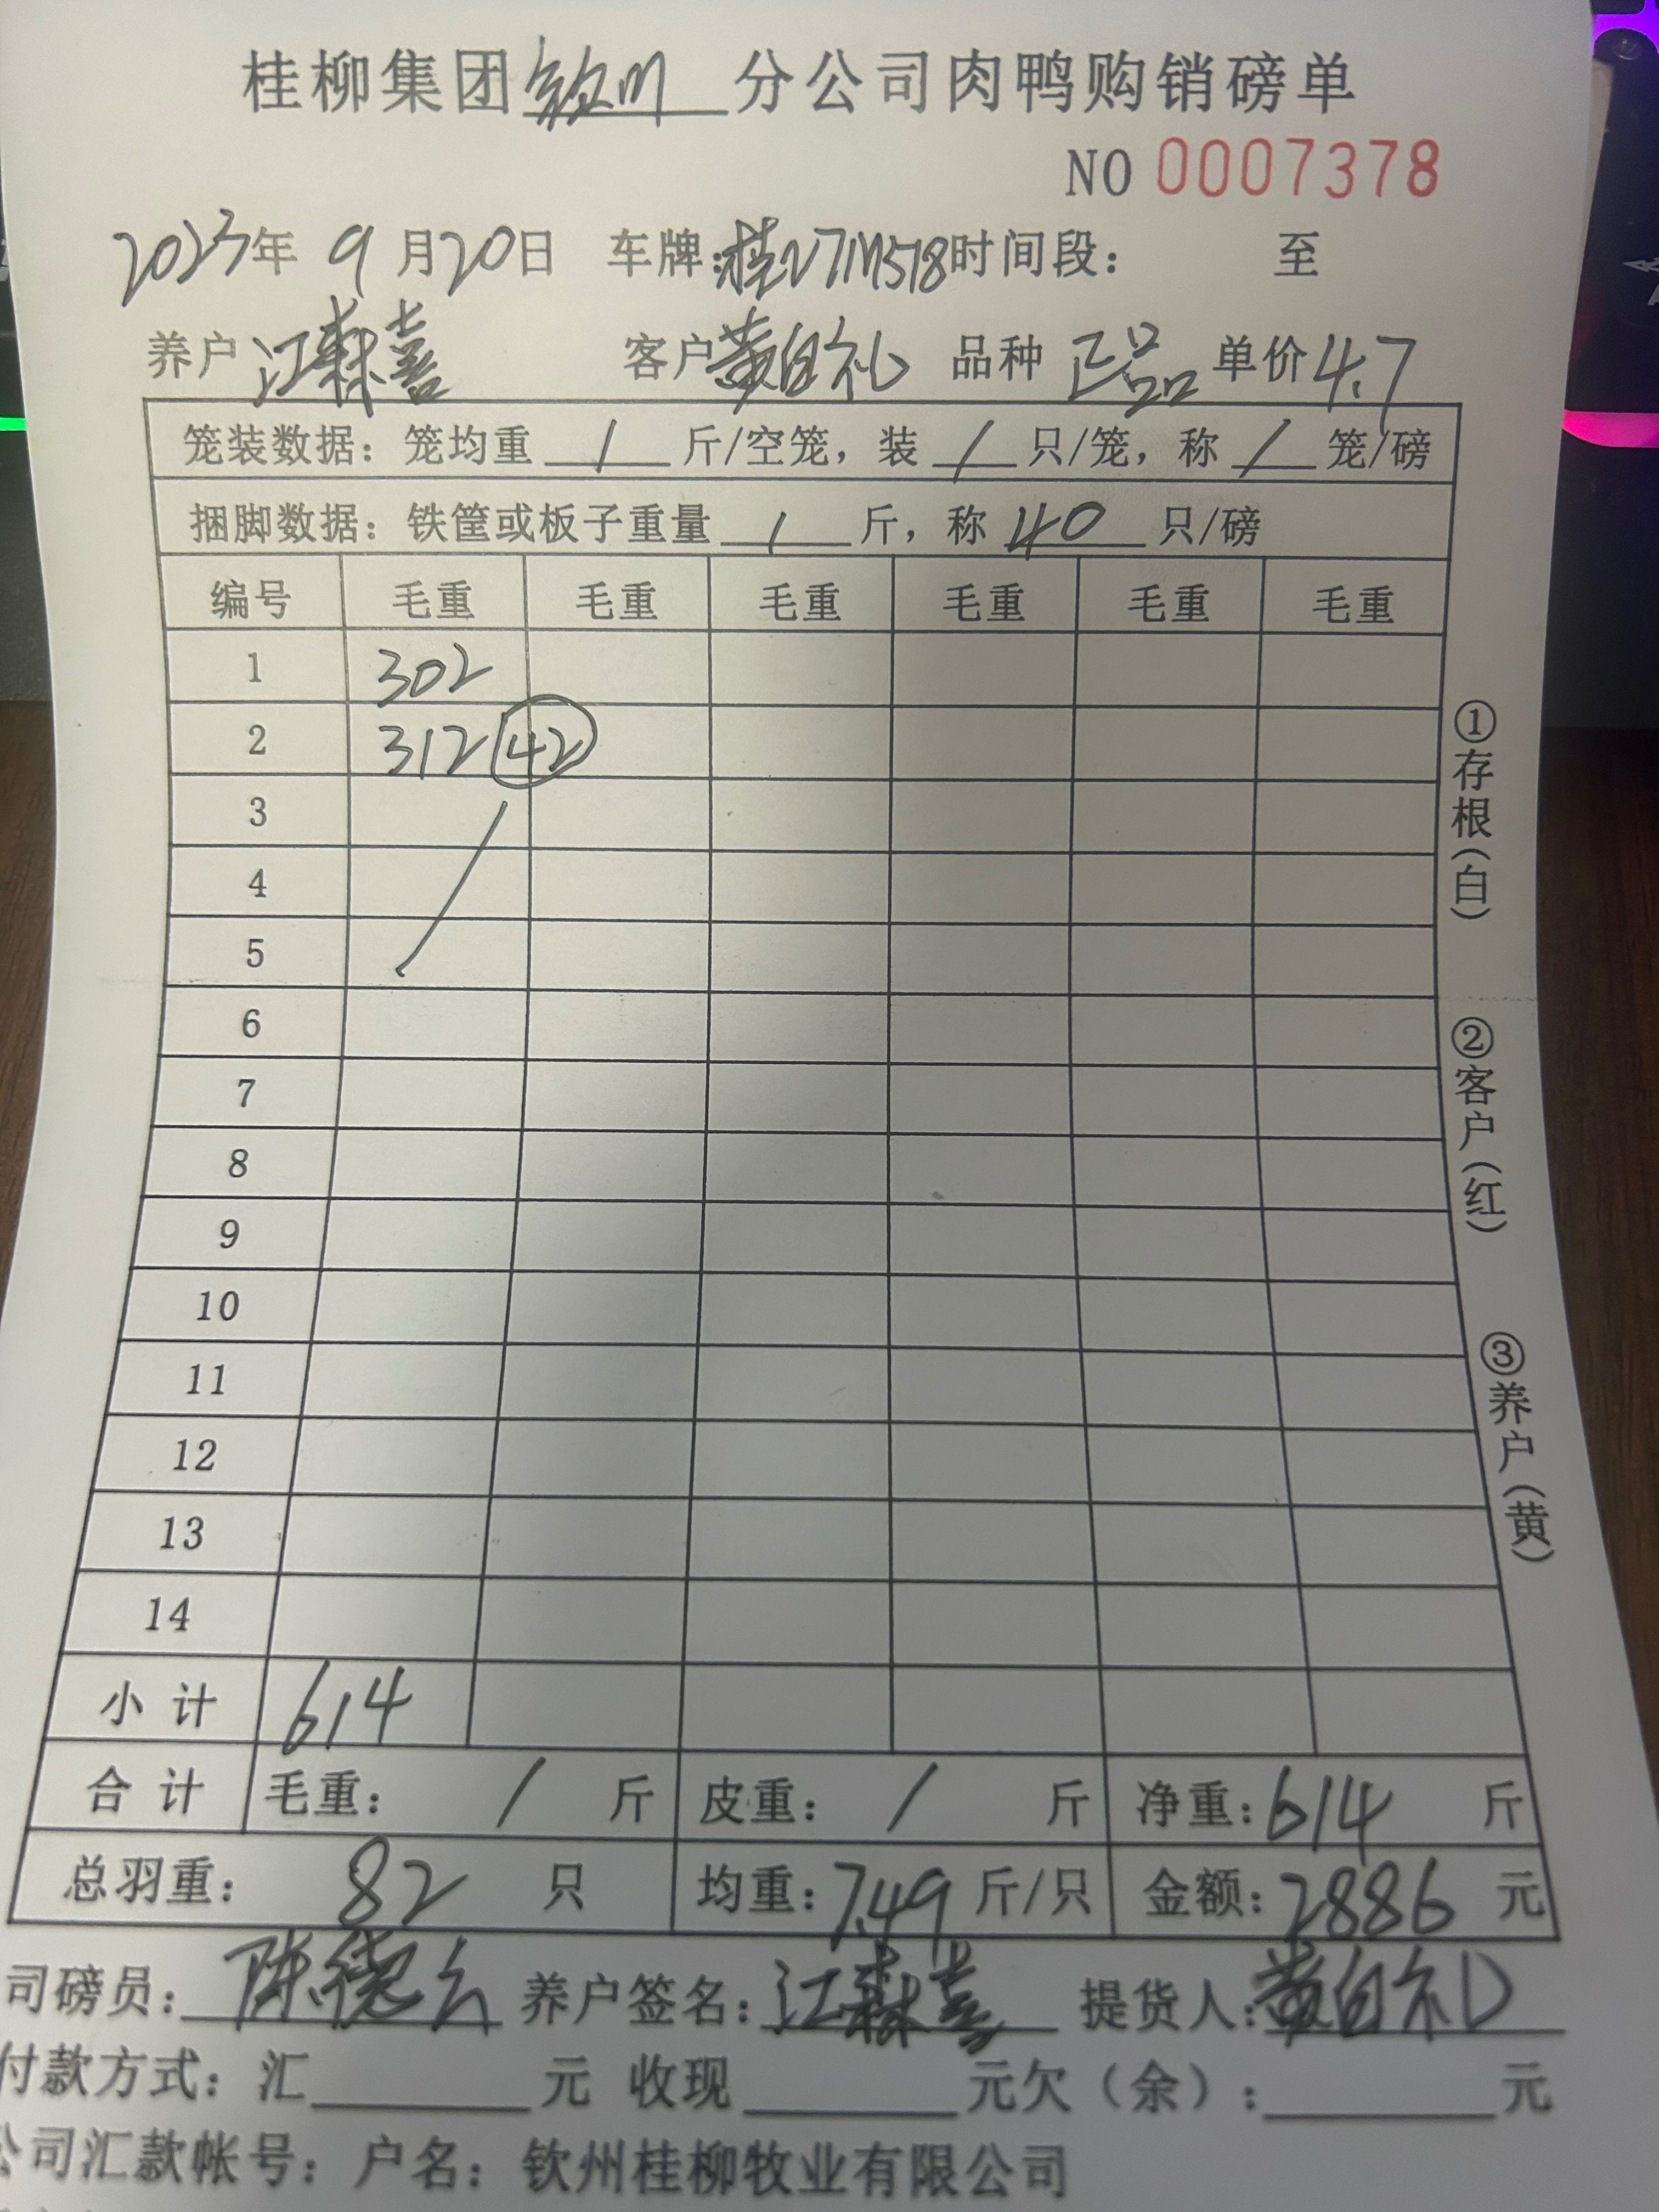 桂柳集团钦州分公司肉鸭购销磅单
NO 0007378
2023年 9月20日 车牌:桂 时间段: 至
养户 江森喜 客户 黄自礼 品种 正品 单价 4.7
笼装数据: 笼均重 / 斤/空笼, 装 / 只/笼, 称 / 笼/磅
捆脚数据: 铁筐或板子重量 / 斤, 称 40 只/磅
编号 毛重 毛重 毛重 毛重 毛重 毛重
1 302
2 312 42
3
4
5
6
7
8
9
10
11
12
13
14
小计 614
合计 毛重: / 斤 皮重: / 斤 净重: 614 斤
总羽重: 82 只 均重: 7.49 斤/只 金额: 2886 元
司磅员: 陈德云 养户签名: 江森喜 提货人: 黄自礼
付款方式: 汇 元 收现 元欠(余): 元
公司汇款帐号: 户名: 钦州桂柳牧业有限公司
①存根(白)
②客户(红)
③养户(黄)